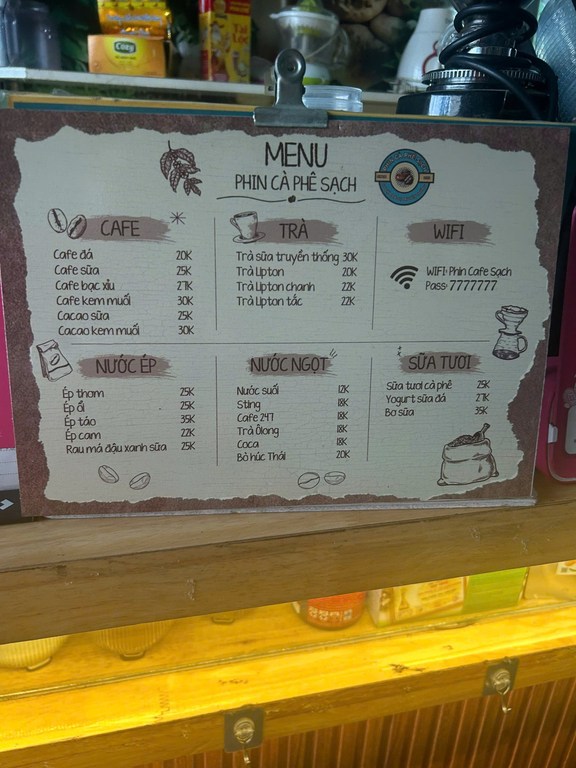 Cozy
MENU
PHIN CÀ PHÊ SẠCH
CAFE
Cafe đá 20K
Cafe sữa 25K
Cafe bạc xỉu 27K
Cafe kem muối 30K
Cacao sữa 25K
Cacao kem muối 30K
TRÀ
Trà sữa truyền thống 30K
Trà Lipton 20K
Trà Lipton chanh 22K
Trà Lipton tắc 22K
WIFI
WIFI: Phin Cafe Sạch
Pass: 7777777
NƯỚC ÉP
Ép thơm 25K
Ép ổi 25K
Ép táo 35K
Ép cam 22K
Rau má đậu xanh sữa 25K
NƯỚC NGỌT
Nước suối 12K
Sting 18K
Cafe 247 18K
Trà Ôlong 18K
Coca 18K
Bò húc Thái 20K
SỮA TƯƠI
Sữa tươi cà phê 25K
Yogurt sữa đá 27K
Bơ sữa 35K